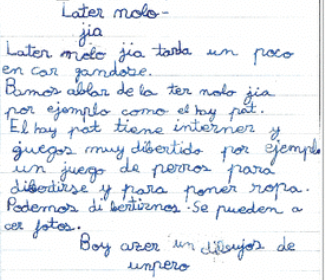 Later molo-
jia
Later molo jia tarda un poco
en car gandose.
Bamos ablar de la ter nolo jia
por ejemplo como el hay pat.
El hay pat tiene interner y
guegos muy dibertido por ejemplo
un juego de perros para
dibedirse y para poner ropa.
Podemos di bertirnos. Se pueden a
cer fotos.
Boy azer un dibujos de
unpero